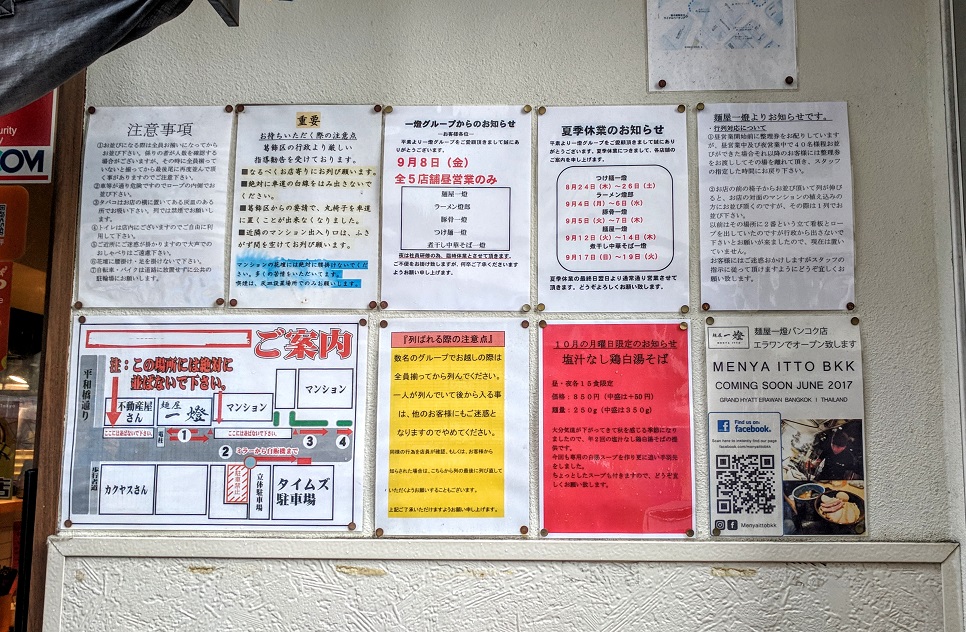 urity
COM
注意事項
①お並びになる際は全員お揃いになってから
お並び下さい。
②車等が通り危険ですのでロープの内側でお
並び下さい。
③タバコはお店の横に置いてある灰皿のある
所でお吸い下さい。
④トイレは店内にございますのでご自由に利
用して下さい。
⑤ご近所にご迷惑が掛かりますので大声での
おしゃべりはご遠慮下さい。
⑥花壇に腰掛け・足を掛けないで下さい。
⑦自転車・バイクは道路に放置せずに公共の
駐輪場にお願いします。
重要
お待ちいただく際の注意点
葛飾区の行政より厳しい
指導勧告を受けております。
■なるべくお店寄りにお列び願います。
■絶対に車道の白線をはみ出さないで
ください。
■葛飾区からの要請で、丸椅子を車道
に置くことが出来なくなりました。
■近隣のマンション出入り口は、ふさ
がず間を空けてお列び願います。
マンションの花壇には絶対に腰掛けないでくだ
さい。多くの苦情をいただいてます。
喫煙は、灰皿設置場所でのみお願いします。
一燈グループからのお知らせ
―お客様各位―
平素より一燈グループをご愛顧頂きまして誠にあ
りがとうございます。
9月8日(金)
全5店舗昼営業のみ
麺屋一燈
ラーメン燈郎
豚骨一燈
つけ麺一燈
煮干し中華そば一燈
夜は社員研修の為、臨時休業とさせて頂きます。
ご不便をお掛け致しますが、何卒ご了承くださいます
ようお願い申し上げます。
夏季休業のお知らせ
平素より一燈グループをご愛顧頂きまして誠にあり
がとうございます。夏季休業につきまして、各店舗の
ご案内を申し上げます。
つけ麺一燈
8月24日(木)～26日(土)
ラーメン燈郎
9月4日(月)～6日(水)
豚骨一燈
9月5日(火)～7日(木)
麺屋一燈
9月12日(火)～14日(木)
煮干し中華そば一燈
9月17日(日)～19日(火)
夏季休業の最終日翌日より通常通り営業させて
頂きます。どうぞよろしくお願い致します。
麺屋一燈よりお知らせです。
・行列対応について
①昼営業開始前に整理券をお配りしています
が、昼営業中及び夜営業中で40名様程お並
びができた場合それ以降のお客様には整理券
をお渡ししてその場を離れて頂き、スタッフ
の指定した時間にお戻り下さい。
②お店の前の椅子からお並び頂いて列が伸び
ると、お店の対面のマンションの植え込みの
方にお並び頂くのですが、その際は1列でお
並び下さい。
以前はその場所に2番という立て看板とロー
プを出していたのですが行政から出さないで
下さいとお願いが来ましたので、現在は置い
ていません。
お客様にはご迷惑おかけしますがスタッフの
指示に従って頂けますようにどうぞ宜しくお
願い致します。
ご案内
注：この場所には絶対に
並ばないで下さい。
平和橋通り
不動産屋
さん
麺屋
一燈
マンション
マンション
ここには並ばないで下さい。
電柱
1
ここには並ばないで下さい。
3
4
2
ミラーから自販機まで
歩行者道
カクヤスさん
立体駐車場
タイムズ
駐車場
『列ばれる際の注意点』
数名のグループでお越しの際は
全員揃ってから列んでください。
一人が列んでいて後から入る事
は、他のお客様にもご迷惑と
なりますのでやめてください。
同様の行為を店員が確認、もしくは、お客様から
知らされた場合はこちらから列の最後に列び直して
いただくようお願いすることもございます。
上記ご了承いただけますようお願い申し上げます。
10月の月曜日限定のお知らせ
塩汁なし鶏白湯そば
昼・夜各15食限定
価格：850円(中盛は+50円)
麺量：250g(中盛は350g)
大分気温が下がってきて秋を感じる季節になり
ましたので、
今回も専用の白湯スープを作り更に追い手羽先
をしました。
ちょっとしたスープも付きますので、どうぞ宜
しくお願い致します。
麺屋一燈
麺屋一燈バンコク店
エラワンでオープン致します
MENYA ITTO BKK
COMING SOON JUNE 2017
GRAND HYATT ERAWAN BANGKOK I THAILAND
Find us on:
facebook.
Scan here to instantly find our page
facebook.com/menyaittobkk
Menyaittobkk